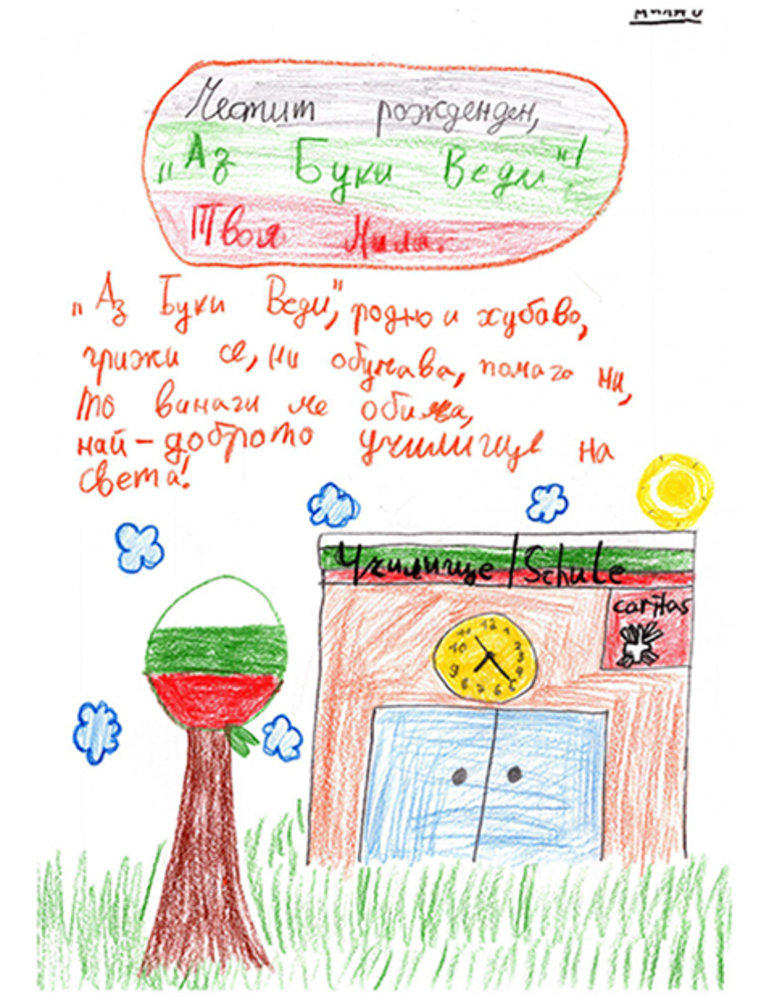 Честит рожденден,
„Аз Буки Веди"!
Твоя Мила.
„Аз Буки Веди", родно и хубаво,
грижи се, ни обучава, помага ни,
то винаги ме обича,
най-доброто училище на
света!
Училище | Schule
caritas